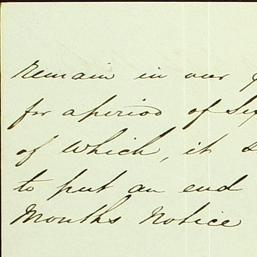 remain in our
for a period of
of which, it
to put an end
Months Notice